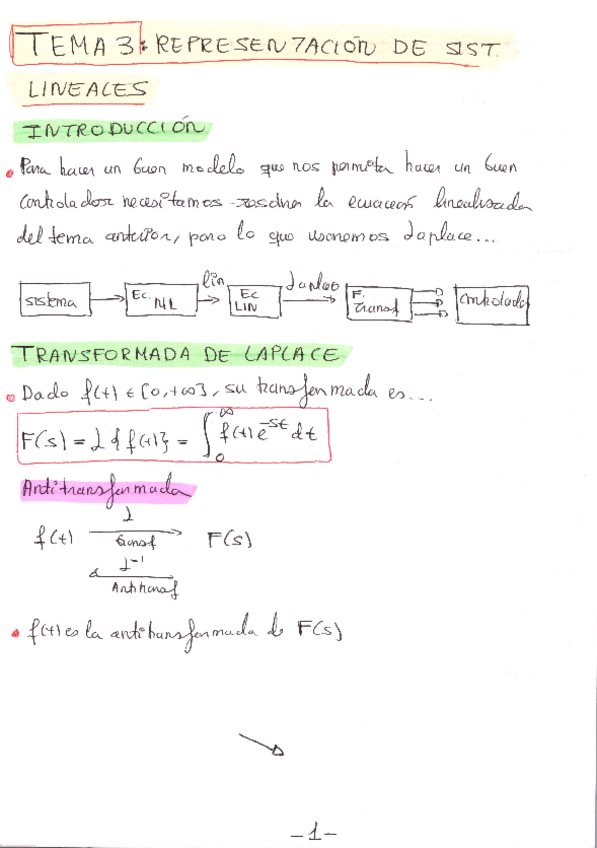 TEMA 3: REPRESENTACIÓN DE SIST.
LINEALES
INTRODUCCIÓN
• Para hacer un buen modelo que nos permita hacer un buen
controlador necesitamos resolver la ecuación linealizada
del tema anterior, para lo que usaremos Laplace...
sistema → Ec. NL → lin → Ec LIN → Laplace → F. Transf → Controlador
TRANSFORMADA DE LAPLACE
• Dado f(t) ∈ [0, +∞], su transformada es...
F(s) = ℒ{f(t)} = ∫₀^∞ f(t) e^-st dt
Antitransformada
f(t) ℒ transf F(s)
ℒ⁻¹
Antitransf
• f(t) es la antitransformada de F(s)
-1-